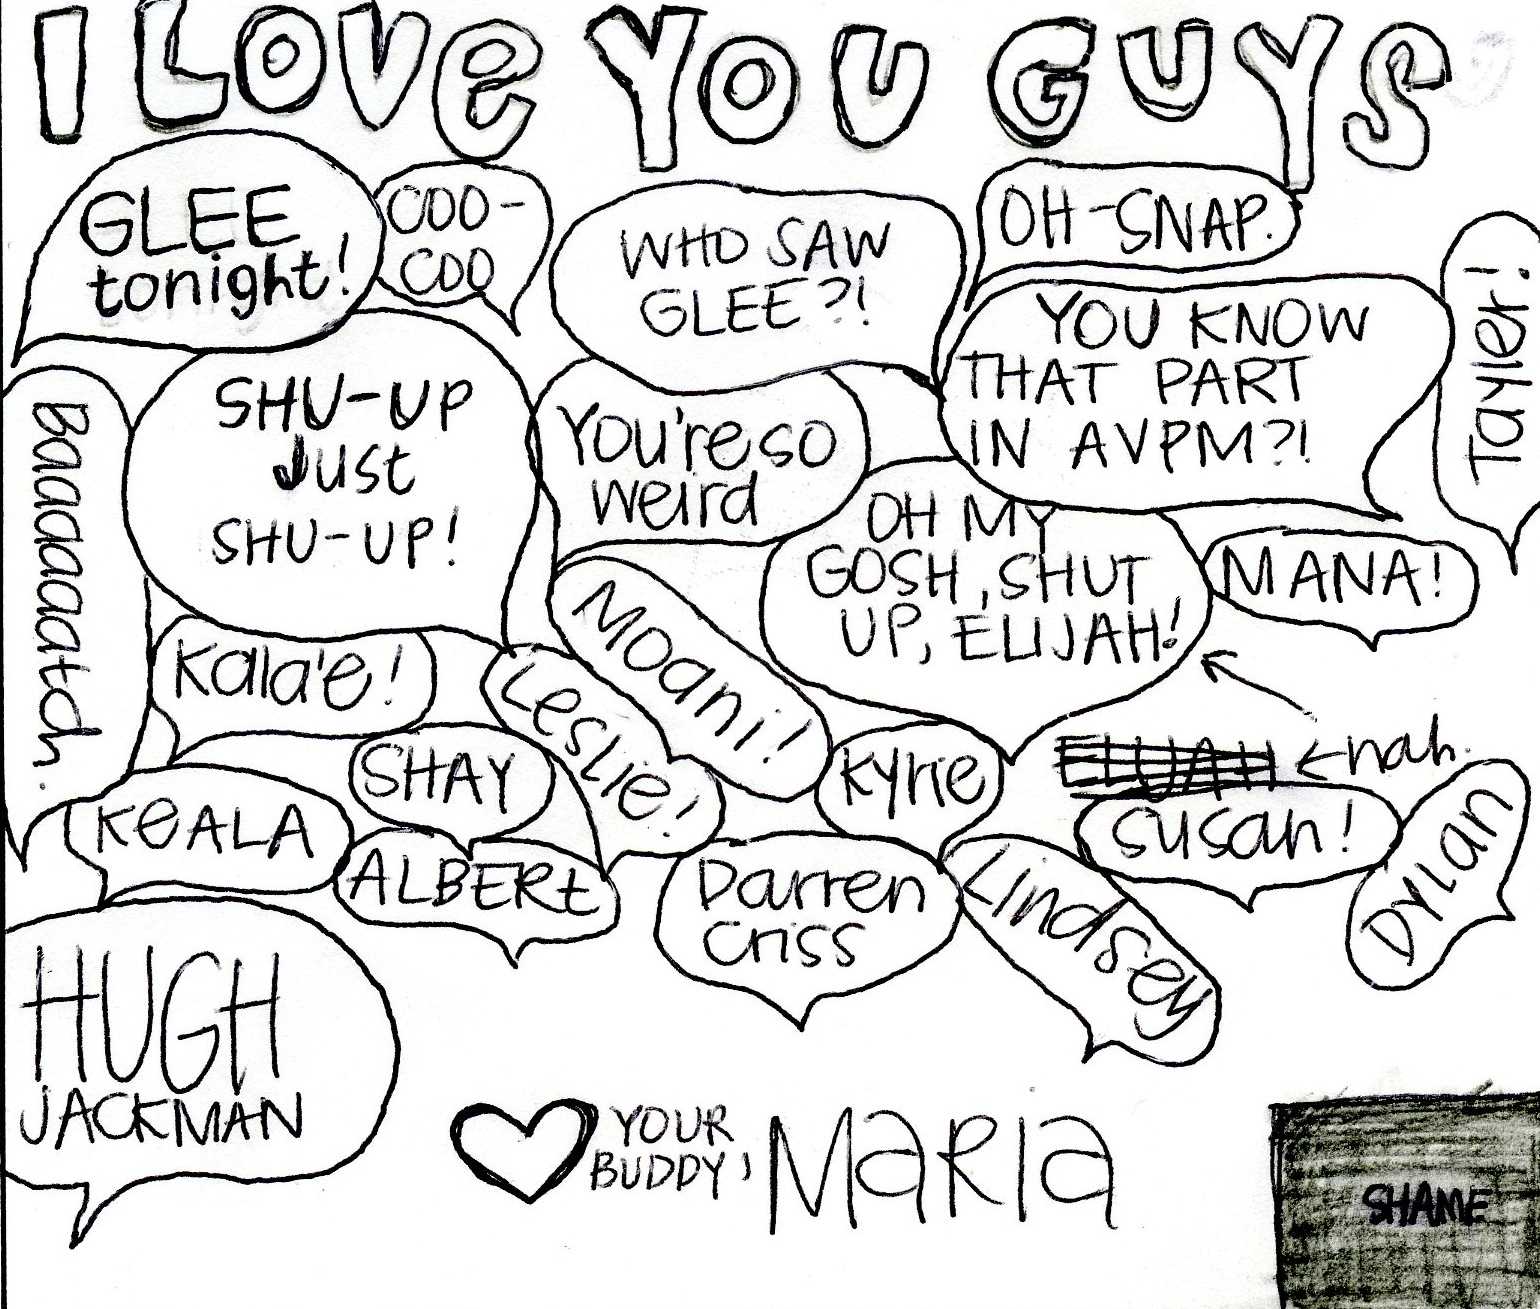 I LOVe YOU GUYS
GLEE
tonight!
COO-
COO
WHO SAW
GLEE?!
OH-SNAP.
Tayler!
YOU KNOW
THAT PART
IN AVPM?!
Baaaaaaatch.
SHU-UP
Just
SHU-UP!
You're so
weird
OH MY
GOSH, SHUT
UP, ELIJAH!
MANA!
Kala'e!
Leslie!
Moani!
SHAY
Kyrie
ELIJAH
nah.
KeALA
ALBERt
Darren
Criss
Lindsey
susan!
Dylan
HUGH
JACKMAN
YOUR
BUDDY,
MaRIa
SHAME